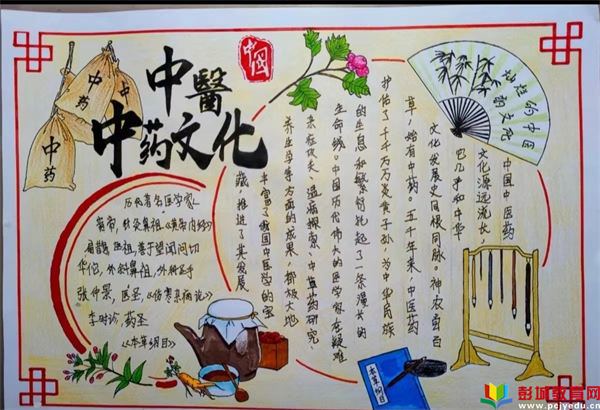 中醫
中药文化
中国
中药
中药
中药
的中国
药文化
中国中医药
文化源远流长，
它几乎和中华
文化发展史同根同脉。神农尝百
草，始有中药。五千年来，中医药
护佑了千千万万炎黄子孙，为中华民族
的生息和繁衍托起了一条漫长的
生命线。中国历代伟大的医学家在疑难
温病探索、中草药研究、
等方面的成果，都极大地
丰富了我国中医学的宝
藏，推进了其发展
历代著名医学家
黄帝，针灸鼻祖，《黄帝内经》
扁鹊，医祖，善于望闻问切
华佗，外科鼻祖，外科圣手
张仲景，医圣，《伤寒杂病论》
李时珍，药圣
《本草纲目》
本草纲目
彭城教育网
www.pcjyedu.cn